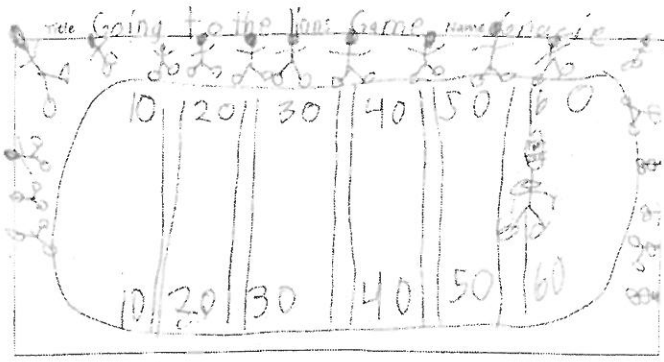 Title Going to the Game Name
10 20 30 40 50 60
10 20 30 40 50 60